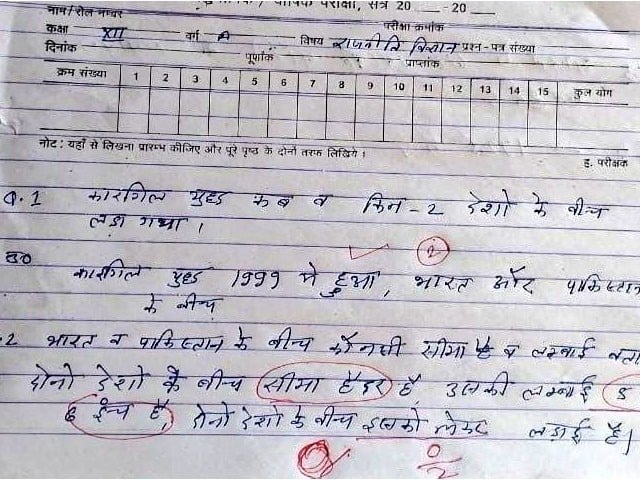 परीक्षा, सत्र 20 ___ -20 ___
नाम/रोल नम्बर
परीक्षा क्रमांक
कक्षा XII वर्ग A विषय राजनीति विज्ञान प्रश्न-पत्र संख्या
दिनांक पूर्णांक प्राप्तांक
क्रम संख्या 1 2 3 4 5 6 7 8 9 10 11 12 13 14 15 कुल योग
नोट : यहाँ से लिखना प्रारम्भ कीजिए और पूरे पृष्ठ के दोनों तरफ लिखिये।
ह. परीक्षक
Q.1 कारगिल युद्ध कब व किन-2 देशो के बीच
लड़ा गया।
2
उ0 कारगिल युद्ध 1999 मे हुआ, भारत और पाकिस्तान
के बीच
2 भारत व पाकिस्तान के बीच कौनसी सीमा है व लम्बाई बता
दोनो देशो के बीच सीमा हैदर है, उसकी लम्बाई 5
6 इंच है, दोनो देशो के बीच इसको लेकर लड़ाई है।
0/2